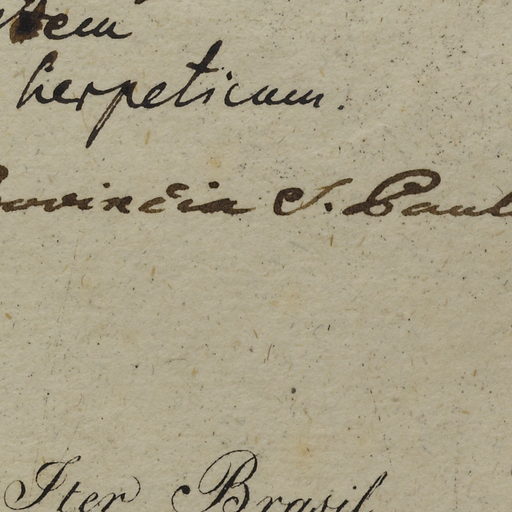 herpeticum.
Provincia S. Paul
Iter Brasil